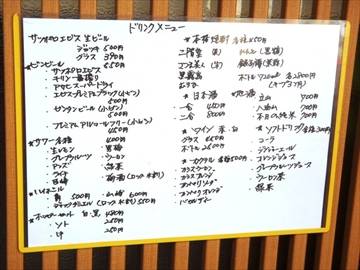 ドリンクメニュー
サッポロエビス生ビール
ジョッキ 600円
グラス 390円
*ビンビール 650円
*サッポロエビス
*キリン一番搾り
*アサヒスーパードライ
*エビスプレミアムブラック(小ビン) 500円
*ゼンタンビール(小ビン) 500円
*プレミアムアルコールフリー(小ビン) 450円
*サワー各種 400円
*生レモン
*グレープフルーツ
*アンズ
*ライチ
*ウーロン
*緑茶
*ハイボール
角 500円 山崎 600円
*ホッピーセット 白・黒 450円
*ソト 250円
*中 250円
*本格焼酎 各種450円
二階堂(麦)
黒霧島
*日本酒
一合 450円
二合 800円
*地酒
立山 700円
八海山 700円
本日の純米 700円
*ワイン 赤・白
グラス 450円
ボトル 2500円
*カクテル 各種500円
カシスウーロン
カシスオレンジ
カンパリソーダ
カンパリオレンジ
*ソフトドリンク 各種300円
コーラ
ジンジャーエール
オレンジジュース
グレープフルーツジュース
ウーロン茶
緑茶